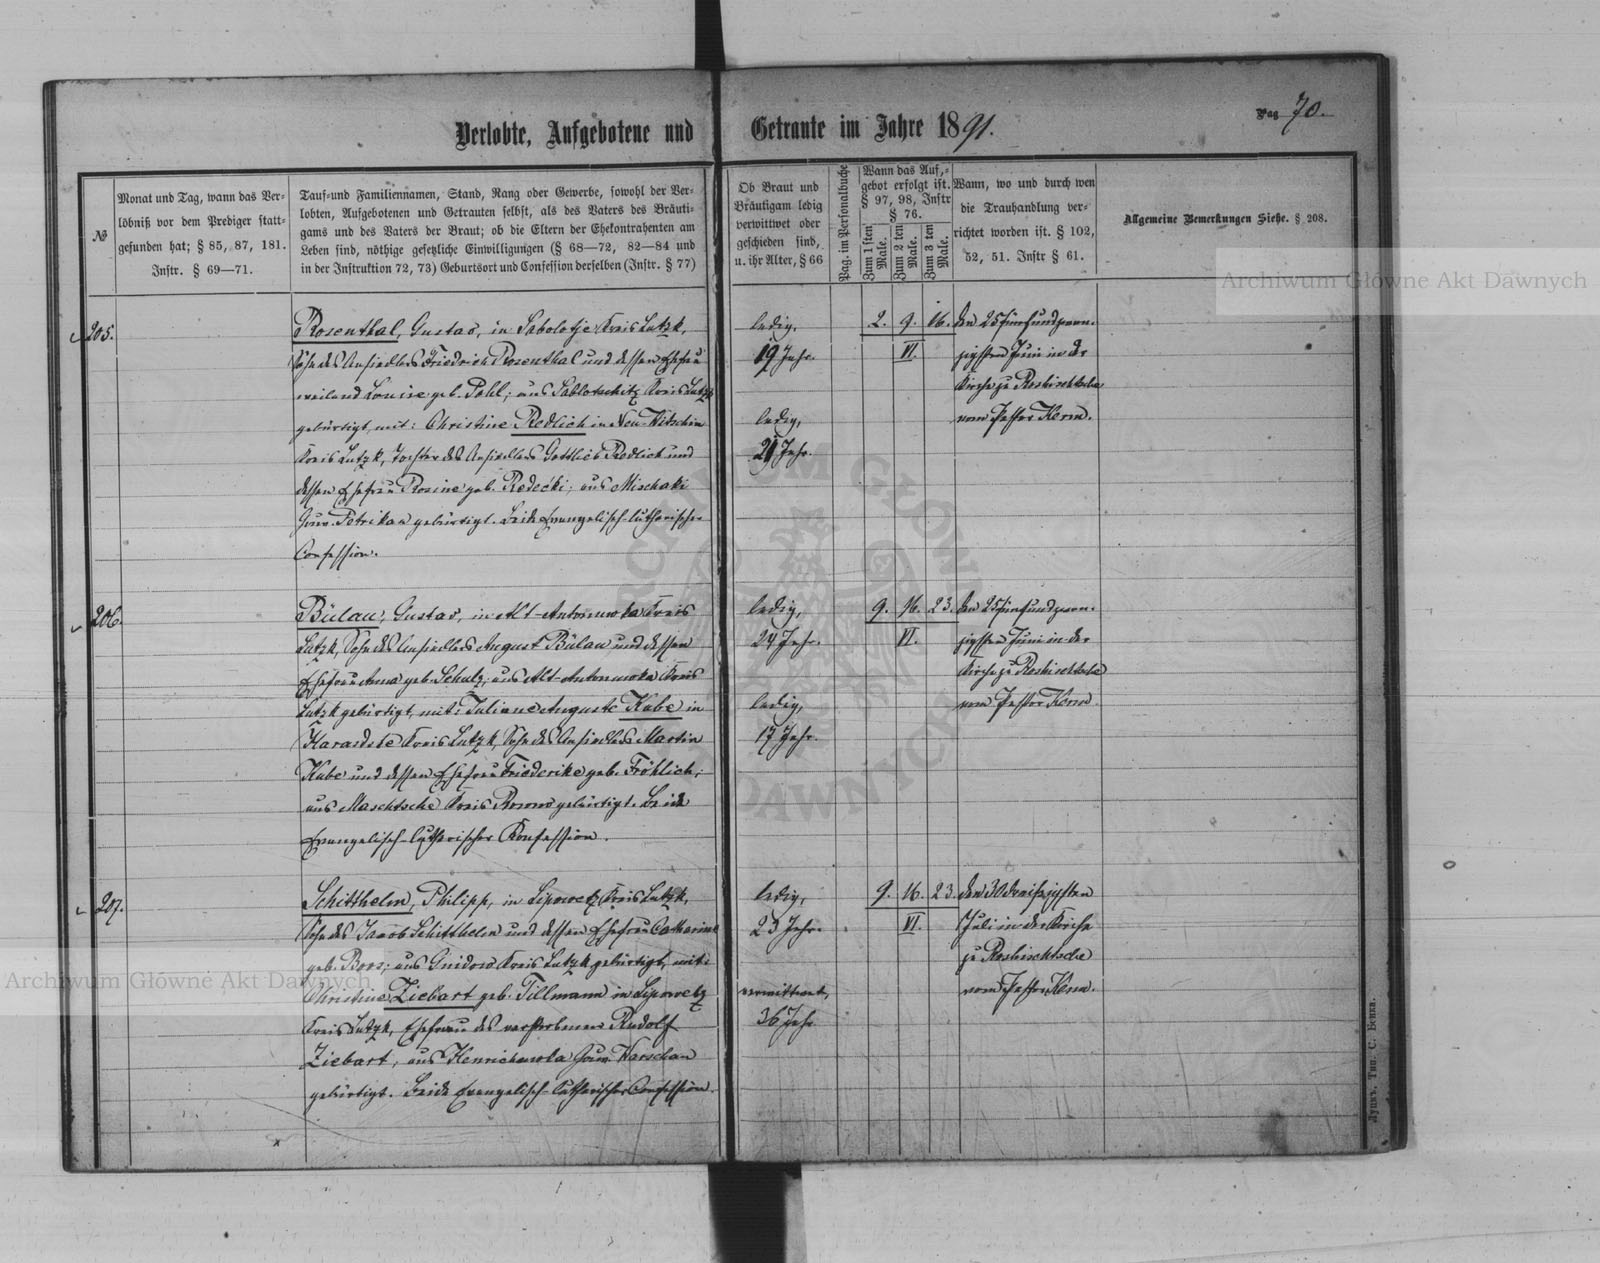 Verlobte, Aufgebotene und Getraute im Jahre 1891.
Pag 70.
№
Monat und Tag, wann das Ver-
löbniß vor dem Prediger statt-
gefunden hat; § 85, 87, 181.
Instr. § 69—71.
Tauf-und Familiennamen, Stand, Rang oder Gewerbe, sowohl der Ver-
lobten, Aufgebotenen und Getrauten selbst, als des Vaters des Bräuti-
gams und des Vaters der Braut; ob die Eltern der Ehekontrahenten am
Leben sind, nöthige gesetzliche Einwilligungen (§ 68—72, 82—84 und
in der Instruktion 72, 73) Geburtsort und Confession derselben (Instr. § 77)
Ob Braut und
Bräutigam ledig
verwittwet oder
geschieden sind,
u. ihr Alter, § 66
Pag. im Personalbuche
Wann das Auf-
gebot erfolgt ist.
§ 97, 98, Instr
§ 76.
Zum 1 sten Male.
Zum 2 ten Male.
Zum 3 ten Male.
Wann, wo und durch wen
die Trauhandlung ver-
richtet worden ist. § 102,
52, 51. Instr § 61.
Allgemeine Bemerkungen Siehe. § 208.
205.
Rosenthal, Gustav, in Sabolotje Kreis Lutzk,
Sohn des Ansiedlers Friedrich Rosenthal und dessen Ehefrau
weiland Louise geb. Pohl; aus Kreis Lutzk
gebürtigt, mit: Christine Redlich in Neu-
Kreis Lutzk, Tochter des Ansiedlers Gottlieb Redlich und
dessen Ehefrau Rosine geb. Redecki; aus Mischaki
Gouv. Petrikau gebürtigt. Beide Evangelisch-lutherischer
Confession.
ledig,
19 Jahr.
ledig,
21 Jahr.
2. 9. 16.
VI.
den 25 fünfundzwan-
zigsten Juni in der
Kirche zu Roshischtsche
vom Pastor Kern.
206.
Bülau, Gustav, in Alt-Antonuwka Kreis
Lutzk, Sohn des Ansiedlers August Bülau und dessen
Ehefrau Anna geb. Schulz; aus Alt-Antonuwka Kreis
Lutzk gebürtigt, mit: Juliane Auguste Kube in
Kreis Lutzk, Sohn des Ansiedlers Martin
Kube und dessen Ehefrau Friederike geb. Fröhlich;
aus Maschtsche Kreis Rowno gebürtigt. Beide
Evangelisch-lutherischer Konfession.
ledig,
24 Jahr.
ledig,
17 Jahr.
9. 16. 23.
VI.
den 25 fünfundzwan-
zigsten Juni in der
Kirche zu Roshischtsche
vom Pastor Kern
207.
Schitthelm, Philipp, in Lipowetz Kreis Lutzk,
Sohn des Jacob Schitthelm und dessen Ehefrau Catharine
geb. Boos; aus Gnidow Kreis Lutzk gebürtigt, mit:
Christine Ziebart geb. Tillmann in Lipowetz
Kreis Lutzk, Ehefrau des verstorbenen Rudolf
Ziebart, aus Gouv. Warschau
gebürtigt. Beide Evangelisch-lutherischer Confession.
ledig,
23 Jahr.
verwittwet,
36 Jahr
9. 16. 23.
VI.
den 30 dreißigsten
Juli in der Kirche
zu Roshischtsche
vom Pastor Kern.
Луцкъ. Тип. С. Бенка.
Archiwum Główne Akt Dawnych
Archiwum Główne Akt Dawnych
ARCHIWUM GŁÓWNE AKT DAWNYCH